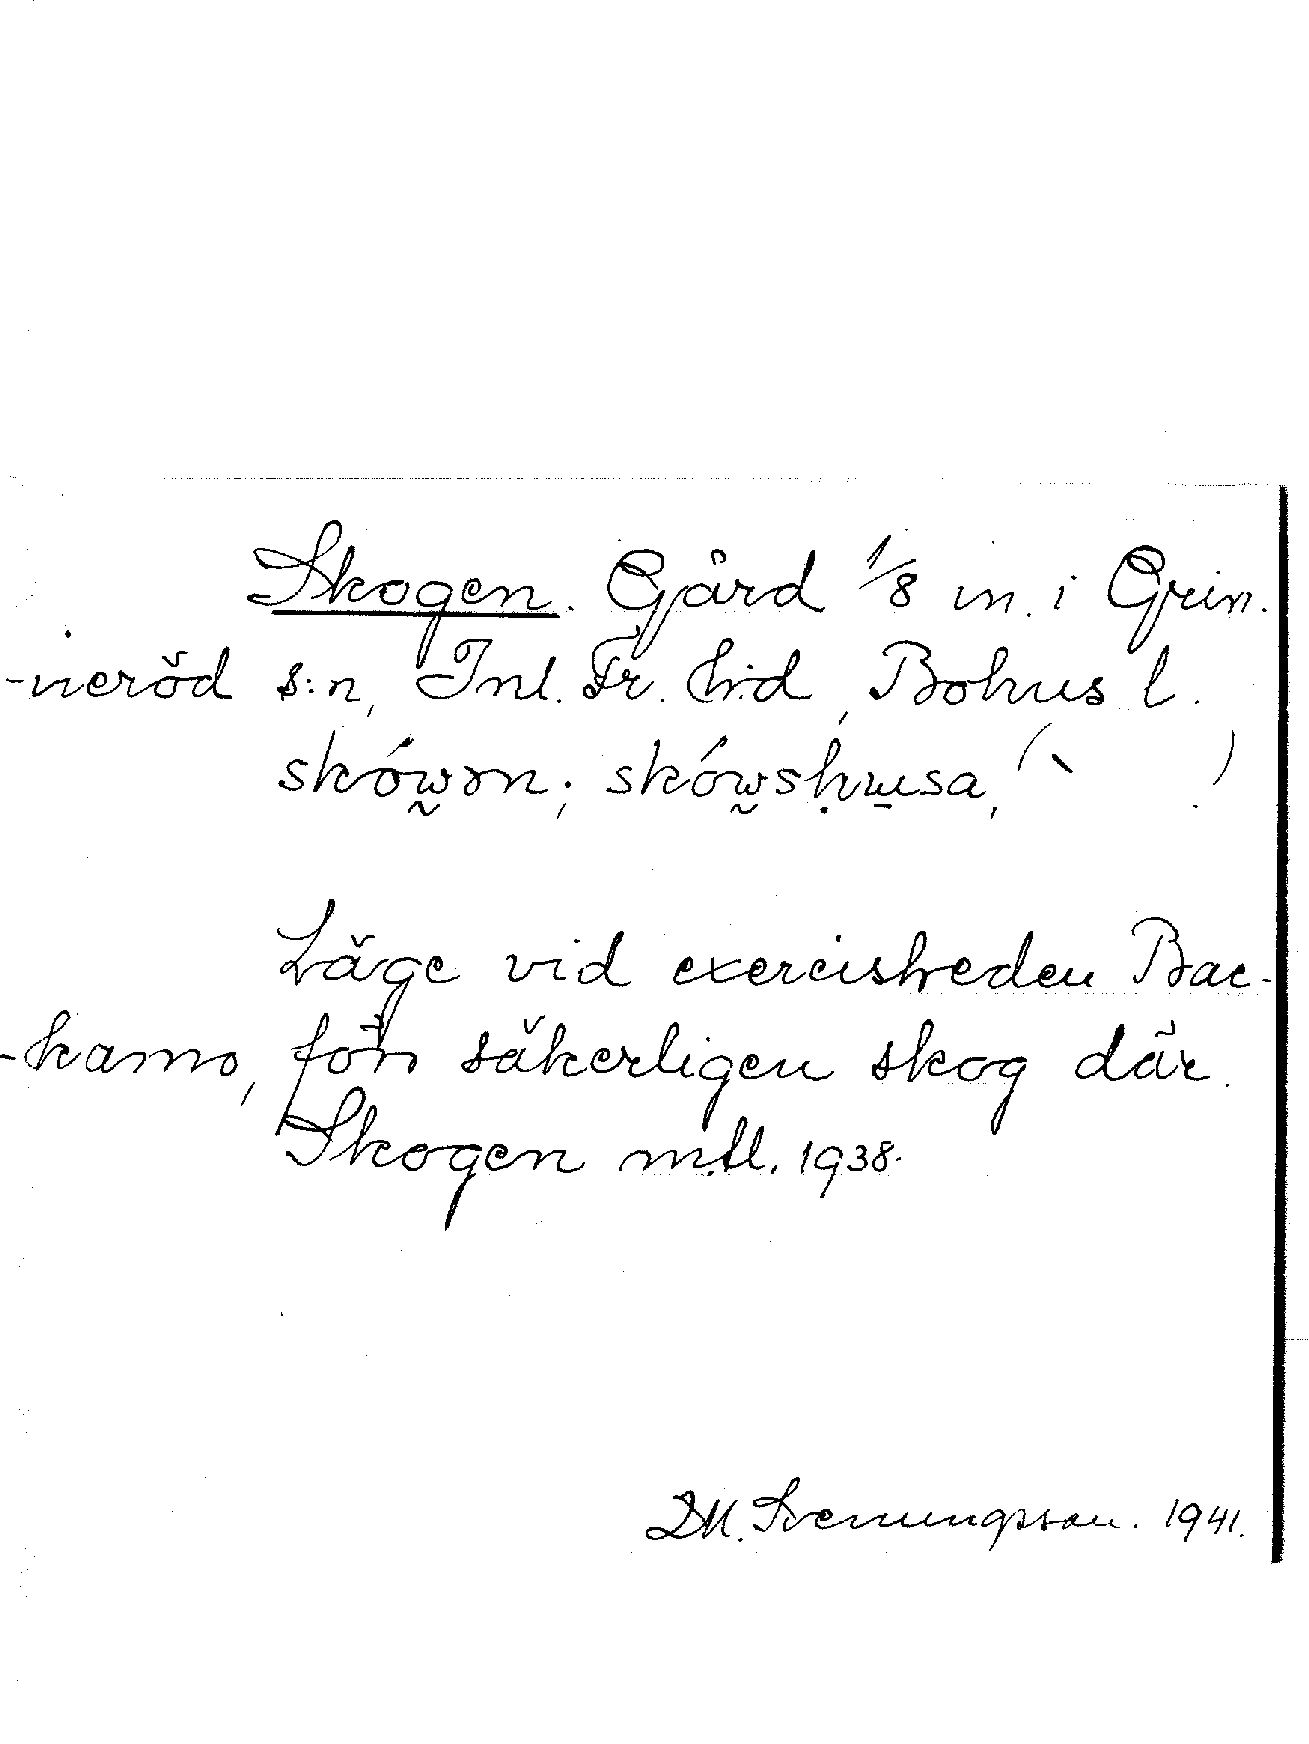 Skogen. Gård 1/8 m. i Grin-
-neröd s:n, Inl. Fr. hrd, Bohus l.
skówən; skówshusa, (\ )
Läge vid exercisheden Bac-
-kamo, förr säkerligen skog där.
Skogen mtl. 1938.
DM. Svenungsson. 1941.